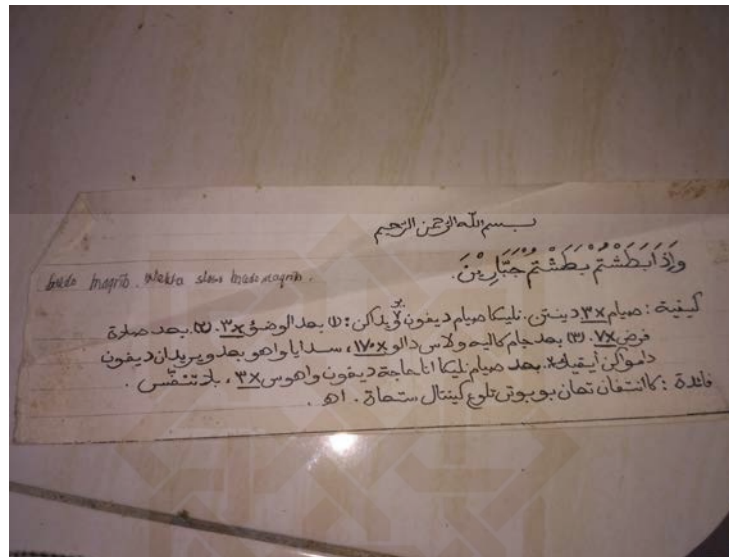 بسم الله الرحمن الرحيم
وَإِذَ ابَطَشْتُمْ بَطَشْتُمْ جَبَّارِيْنَ.
bakda magrib.
كيفية : صيام ٣x دينتن. نليكا صيام ديفون ويداكن : (١) بعد الوضؤ ٣x. (٢) بعد صلاة
فرض ٧x. (٣) بعد جام كاليه ولاس دالو ١٧٠x، سدايا واهو بعد ويريدان ديفون
بعد صيام نليكا انا حاجة ديفون واهوس ٣x، بلا تنفس.
فائدة : كانتفان تهان بوبوتن